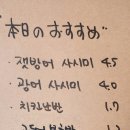 "本日のおすすめ"
· 잿방어 사시미 4.5
· 광어 사시미 4.0
· 치킨난반 1.7